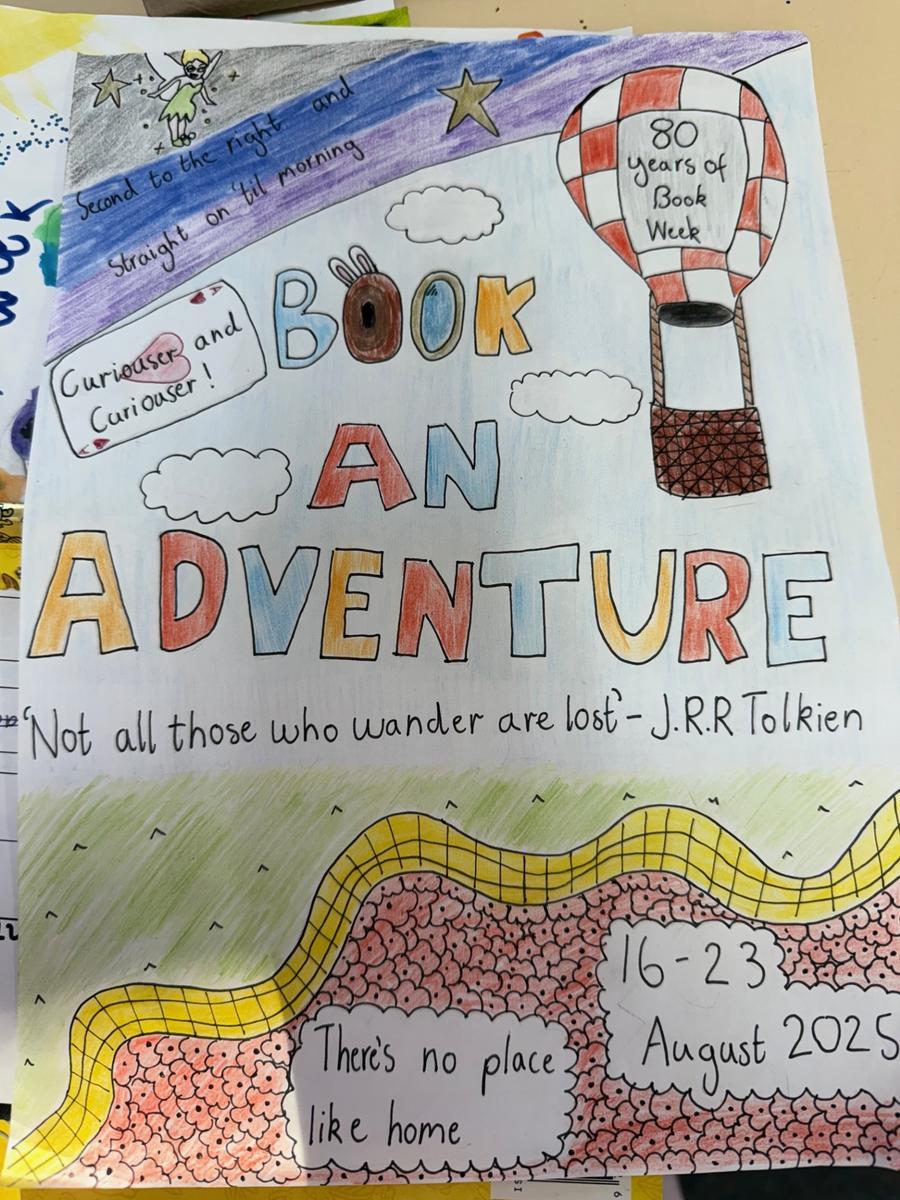 Second to the right and
straight on 'til morning
80
years of
Book
Week
Curiouser and
Curiouser!
BOOK
AN
ADVENTURE
'Not all those who wander are lost' - J.R.R Tolkien
16-23
August 2025
There's no place
like home